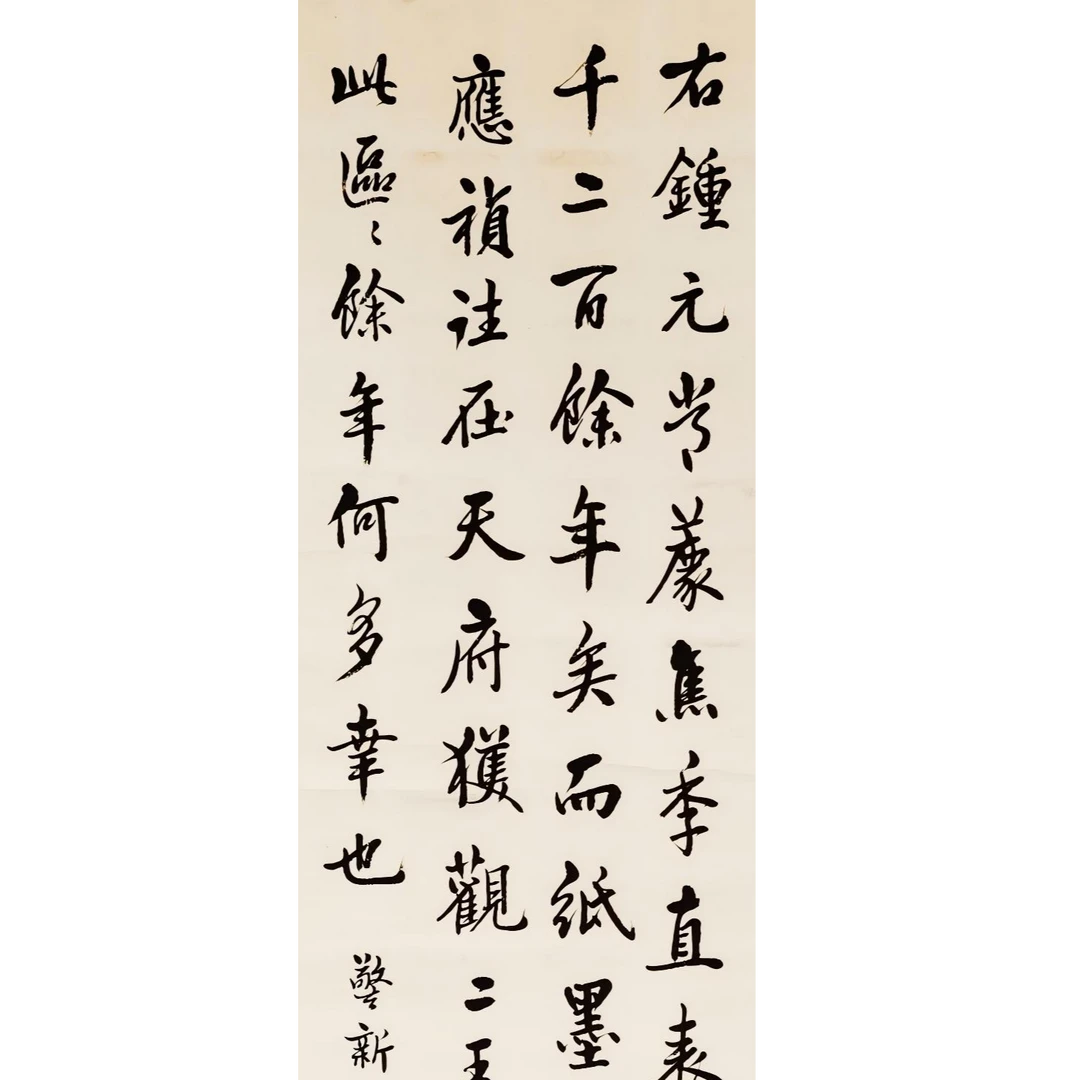 右鍾元常薦焦季直表
千二百餘年矣而紙墨
應禎往在天府獲觀二王
此區〻餘年何多幸也 警新